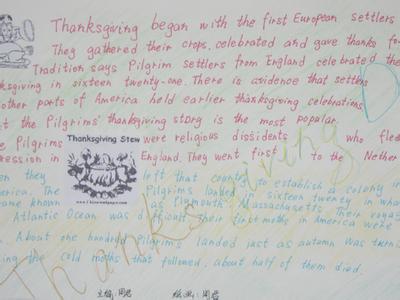 Thanksgiving began with the first European settlers
They gathered their crops, celebrated and gave thanks fo
Tradition says Pilgrim settlers from England celebrated the
ksgiving in sixteen twenty-one. There is evidence that settlers
other parts of America held earlier thanksgiving celebrations
t the Pilgrims' thanksgiving story is the most popular.
e Pilgrims were religious dissidents who fled
ression in England. They went first to the Nether
Thanksgiving Stew
en they left that country to establish a colony in
merica. The Pilgrims landed in sixteen twenty in what
came known as Plymouth, Massachusetts. Their voyage
Atlantic Ocean was difficult. Their first months in America were
n. About one hundred Pilgrims landed just as autumn was turni
ing the cold months that followed, about half of them died.
Thanksgiving D
主编:周君 绘画:周君